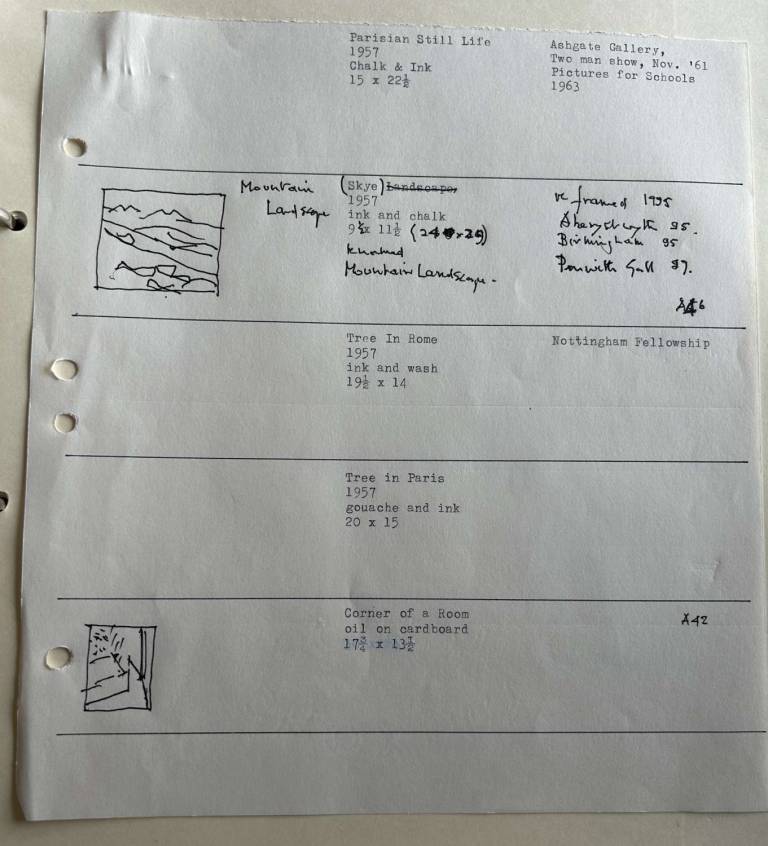 Parisian Still Life
1957
Chalk & Ink
15 x 22½
Ashgate Gallery,
Two man show, Nov. '61
Pictures for Schools
1963
Mountain
Landscape
(Skye) Landscape,
1957
ink and chalk
x 11½
Mountain Landscape.
re framed 1995
Aberystwyth 95.
Birmingham 95
Penwith Gall 97.
Tree In Rome
1957
ink and wash
19½ x 14
Nottingham Fellowship
Tree in Paris
1957
gouache and ink
20 x 15
Corner of a Room
oil on cardboard
17¾ x 13½
A42